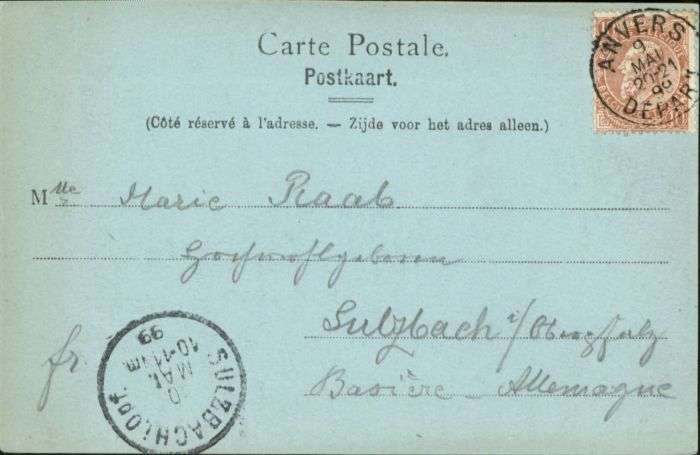 Carte Postale.
Postkaart.
(Côté réservé à l'adresse. — Zijde voor het adres alleen.)
ANVERS
9
MAI
20-21
99
DEPART
Mlle Marie Raab
Hochwohlgeboren
Sulzbach i/Oberpfalz
fr.
Bavière - Allemagne
SULZBACH
10
MAI
10-11
99